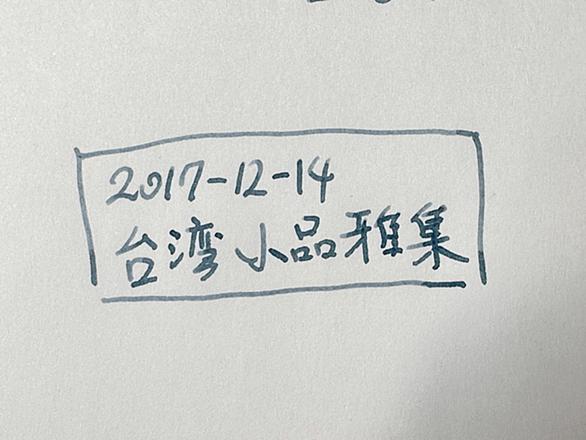 2017-12-14
台湾小品雅集